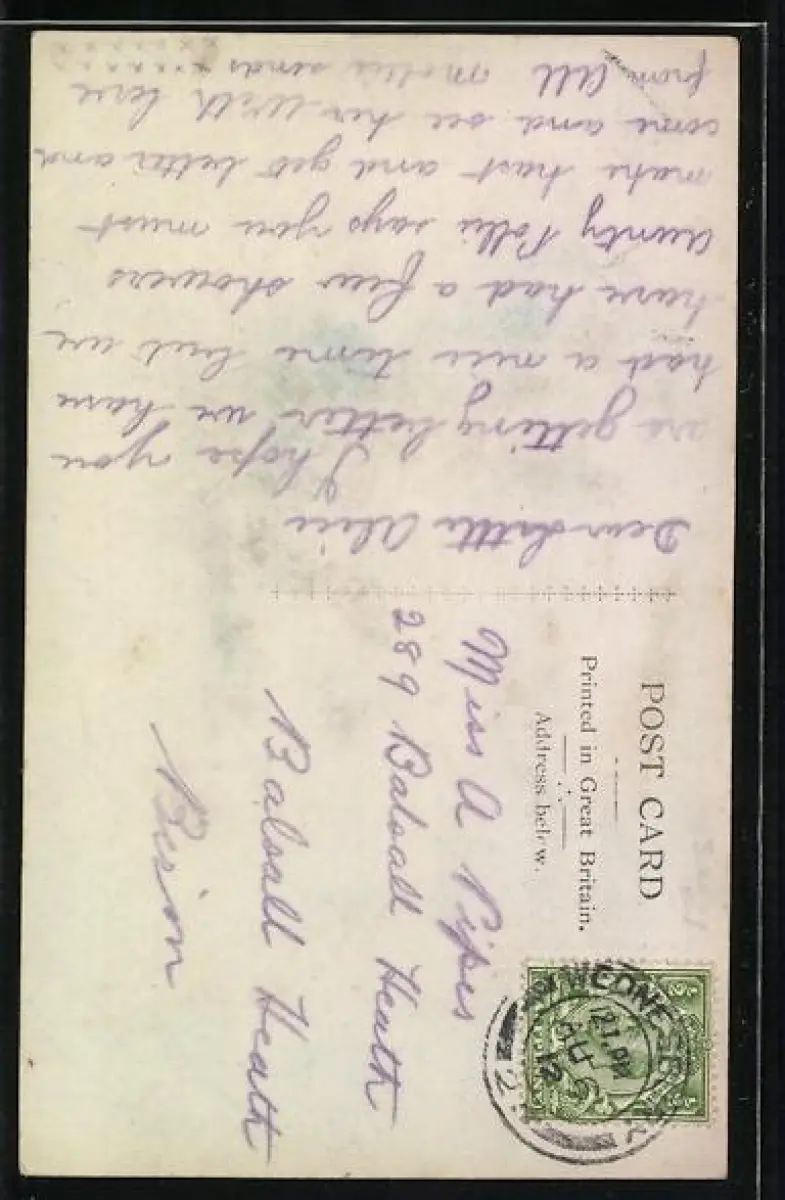 Dear Little Alice
I hope you
are getting better we have
had a nice time but we
have had a few showers
Aunty Polli says you must
make hast and get better and
come and see her With love
from All Mollie sends x x x x
POST CARD
Printed in Great Britain.
Address below.
Miss A Pipes
289 Balsall Heath
Balsall Heath
WEDNESBURY
AU 5
12
2